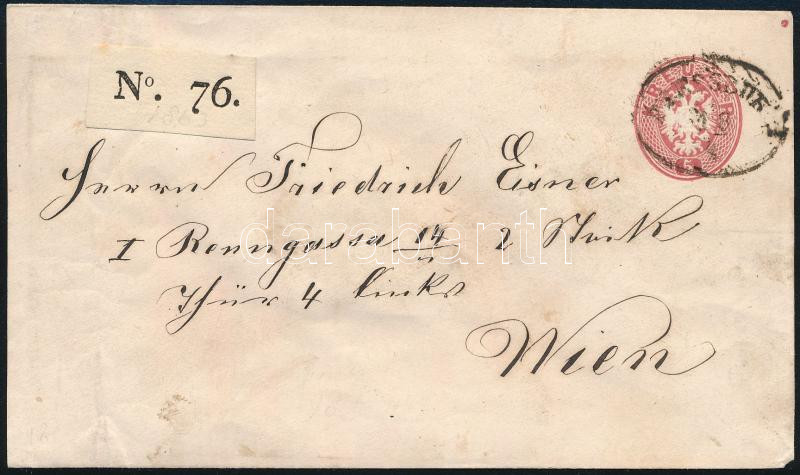 Nº. 76.
KREUZER
5
Herrn Friedrich Eisner
I Renngasse 14
2 Stock
Thür 4 links
Wien
darabanth